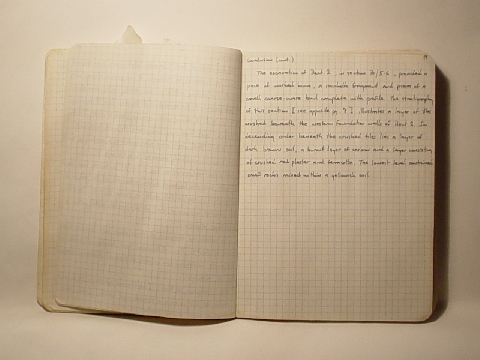 Conclusions (cont.)
The excavation of Test 2, in sections
piece of worked bone, a
small coarse-ware bowl complete with profile. The stratigraphy
of this section [see opposite pg. illustrates a layer of tile
crushed beneath the western foundation walls of Test 2. In
descending order beneath the crushed tiles lies a layer of
dark, brown soil, a burnt layer of and a layer consisting
of crushed red plaster and terracotta. The lowest level contained
small rocks mixed within a yellowish soil.